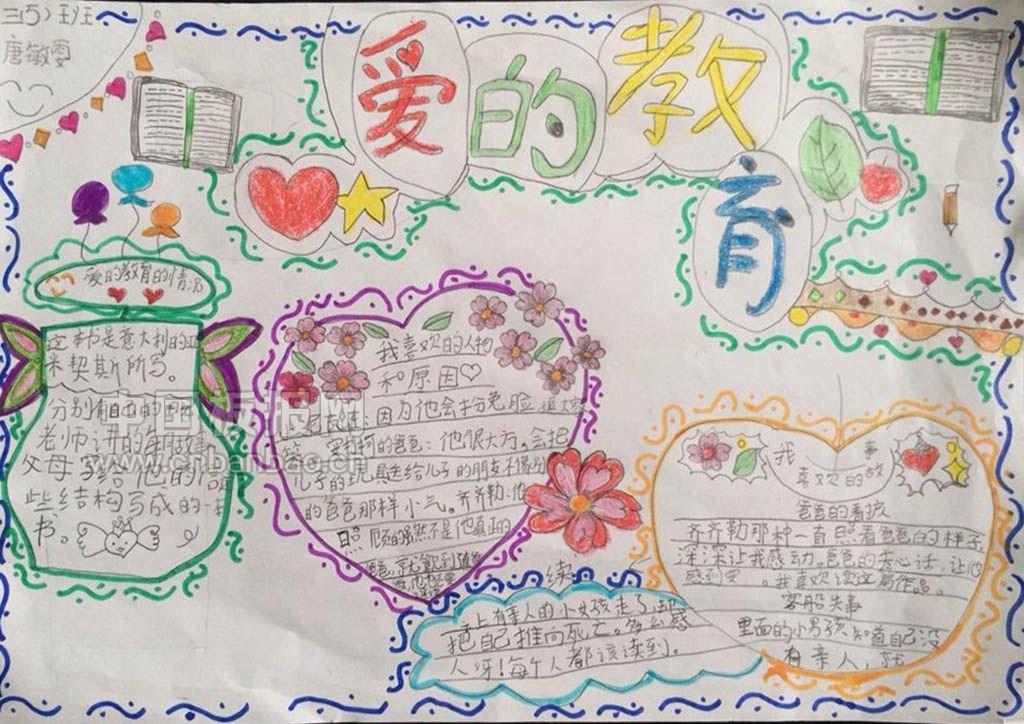 三(5)班
唐敏雯
爱的教育
爱的教育的情况
这本书是意大利的亚
米契斯所写。
分别有自己的日
老师讲的每
父母写给他的
些结构写成的一
书。
我喜欢的人物
和原因
因为他会扮兔脸
的爸爸：他很大方。会把
儿子的玩具送给儿子的朋友不像别
的爸爸那样小气。齐齐勒：他
照顾的虽然不是他真正的
续
上有亲人的小女孩走了,却
把自己推向死亡。多么感
人呀!每个人都该读到。
我喜欢的故事
爸爸的看护
齐齐勒那种一直照看爸爸的样子
深深让我感动。爸爸的关心话,让他
感到 。我喜欢读这篇作品。
客船失事
里面的小男孩,知道自己没
有亲人,就
中国板报网
www.cnbanbao.cn